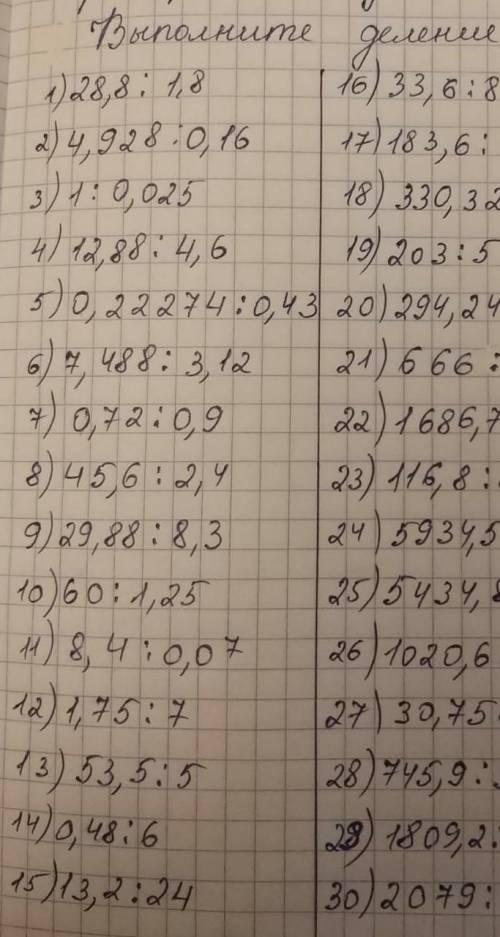 Выполните деление
1) 28,8 : 1,8
2) 4,928 : 0,16
3) 1 : 0,025
4) 12,88 : 4,6
5) 0,22274 : 0,43
6) 7,488 : 3,12
7) 0,72 : 0,9
8) 45,6 : 2,4
9) 29,88 : 8,3
10) 60 : 1,25
11) 8,4 : 0,07
12) 1,75 : 7
13) 53,5 : 5
14) 0,48 : 6
15) 13,2 : 24
16) 33,6 : 8
17) 183,6 :
18) 330,32
19) 203 : 5
20) 294,24
21) 666 :
22) 1686,7
23) 116,8 :
24) 5934,5
25) 5434,8
26) 1020,6
27) 30,75 :
28) 745,9 :
29) 1809,2 :
30) 2079 :